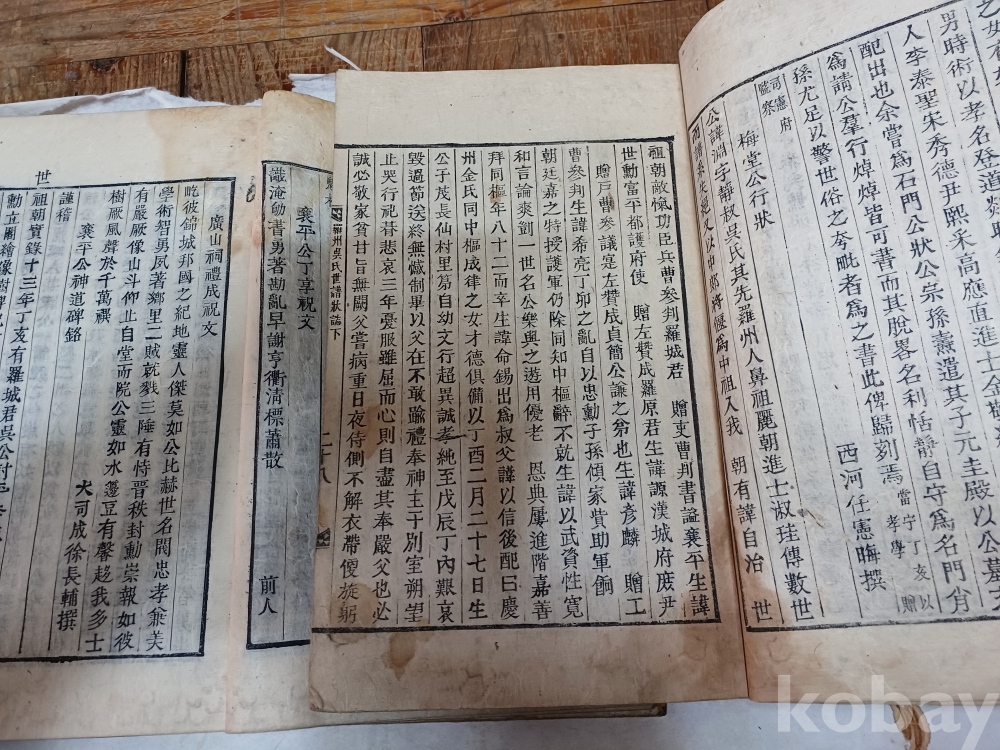 之如有
男時術以孝名登道剡
人李泰聖宋秀德尹熙采高應直進士金
配出也余嘗爲石門公狀公崇孫燾遣其子元圭殿以公墓
爲請公羣行焯焯皆可書而其脫畧名利恬靜自守爲名門肖
孫尤足以警世俗之夸毗者爲之書此俾歸刻焉 當宁丁亥以孝學贈
司憲府監察
西河任憲晦撰
梅堂公行狀
公諱淵字靜叔吳氏其先羅州人鼻祖麗朝進士淑珪傳數世
又以中郞將偃爲中祖入我 朝有諱自治 世
祖朝敵愾功臣兵曹參判羅城君 贈吏曹判書諡襄平生諱
世勳富平都護府使 贈左贊成羅原君生諱源漢城府庶尹
贈戶曹參議寔左贊成貞簡公謙之弟也生諱彥麟 贈工
曹參判生諱希亮丁卯之亂自以忠勳子孫傾家貲助軍餉
朝廷嘉之特授護軍仍除同知中樞辭不就生諱以武資性寬
和言論爽劉一世名公樂與之遊用優老 恩典屢進階嘉善
拜同樞年八十二而卒生諱命錫出爲叔父諱以信後配曰慶
州金氏同中樞成律之女才德俱備以丁酉二月二十七日生
公于茂長仙村里第自幼文行超異誠孝純至戊辰丁內艱哀
毀過節送終無憾制畢以父在不敢踰禮奉神主于別室朔望
上哭行祀朞悲哀三年憂服雖屈而心則自盡其奉嚴父也必
誠必敬家貧甘旨無闕父嘗病重日夜侍側不解衣帶便旋躬
羅州吳氏世譜狀誌下
二十八
襄平公丁享祝文
前人
識淹劬書勇著勘亂早謝亨衢淸標蕭散
世
廣山祠禮成祝文
屹彼錦城邦國之紀地靈人傑莫如公比赫世名閥忠孝兼美
學術智勇夙著鄕里二賊就戮三陲有恃晋秩封勳崇報如彼
有嚴厥像山斗仰止自堂而院公靈如水籩豆有馨趍我多士
樹厥風聲於千萬禩
大司成徐長輔撰
襄平公神道碑銘
謹稽
祖朝實錄十三年丁亥有羅城君吳公
勳立圖繪像樹碑